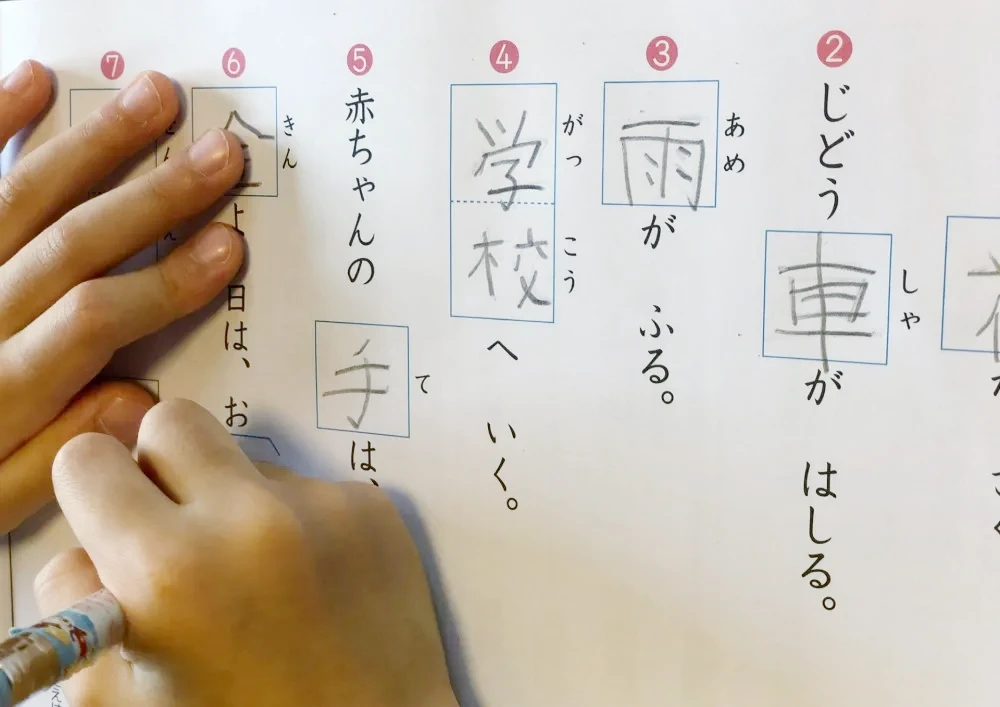 ❷ じどう車が はしる。
しゃ
❸ 雨が ふる。
あめ
❹ 学校へ いく。
がっこう
❺ 赤ちゃんの手は、
て
❻ 金よ日は、お
きん
❼